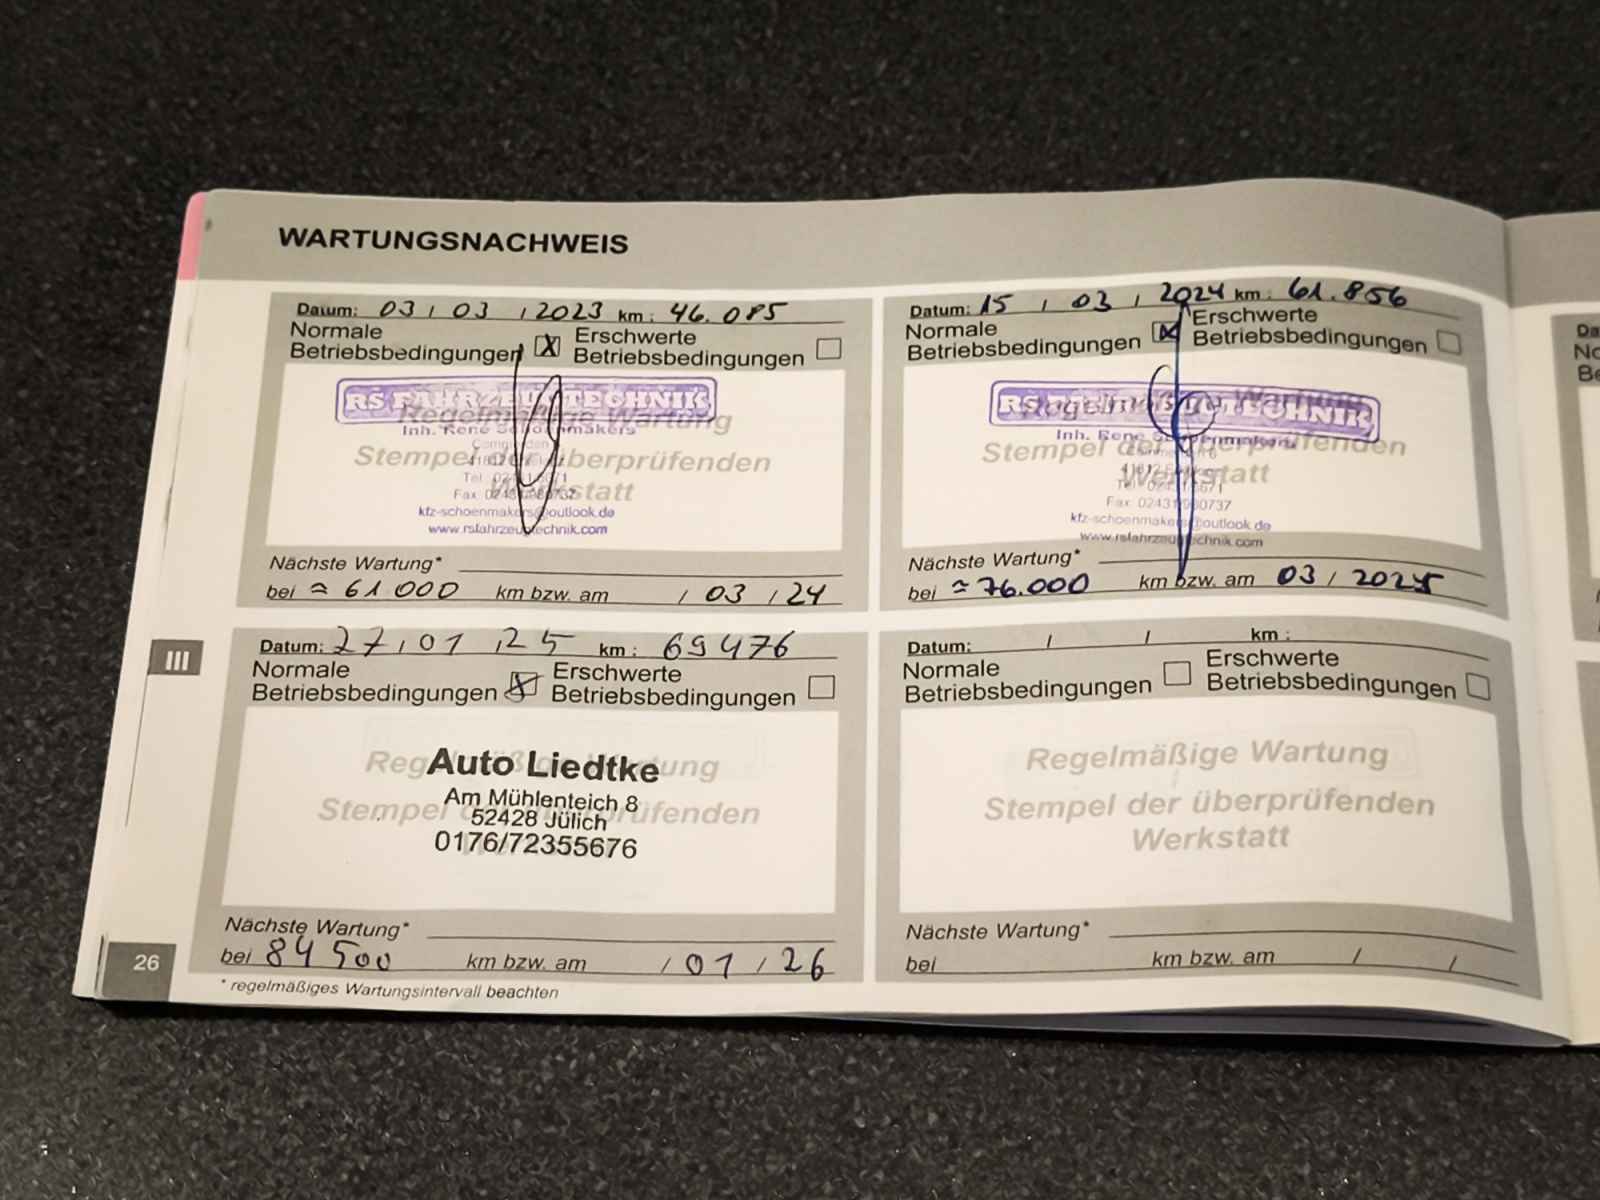 WARTUNGSNACHWEIS
Datum: 03 / 03 / 2023 km : 46.085
Normale Betriebsbedingungen X Erschwerte Betriebsbedingungen
RS FAHRZEUGTECHNIK
Regelmäßige Wartung
Inh. Rene Schoenmakers
Stempel der überprüfenden
Werkstatt
Fax
kfz-schoenmakers@outlook.de
www.rsfahrzeugtechnik.com
Nächste Wartung*
bei ≈ 61.000 km bzw. am / 03 / 24
Datum: 15 / 03 / 2024 km : 61.856
Normale Betriebsbedingungen X Erschwerte Betriebsbedingungen
RS FAHRZEUGTECHNIK
Regelmäßige Wartung
Inh. Rene Schoenmakers
Stempel der überprüfenden
Werkstatt
Fax
kfz-schoenmakers@outlook.de
www.rsfahrzeugtechnik.com
Nächste Wartung*
bei ≈ 76.000 km bzw. am 03 / 2025
III
Datum: 27 / 01 / 25 km : 69476
Normale Betriebsbedingungen X Erschwerte Betriebsbedingungen
Auto Liedtke
Regelmäßige Wartung
Am Mühlenteich 8
Stempel der überprüfenden
52428 Jülich
0176/72355676
Nächste Wartung*
bei 84 500 km bzw. am / 01 / 26
* regelmäßiges Wartungsintervall beachten
26
Datum: / / km :
Normale Betriebsbedingungen Erschwerte Betriebsbedingungen
Regelmäßige Wartung
Stempel der überprüfenden
Werkstatt
Nächste Wartung*
bei km bzw. am / /